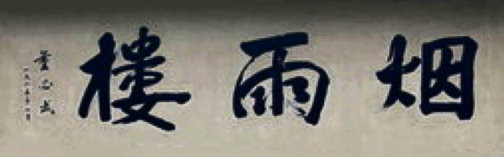 烟雨楼
董必武